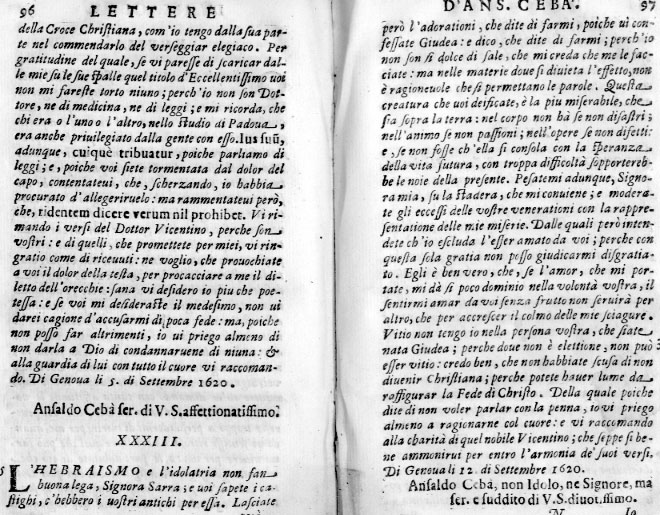 96 LETTERE
della Croce Christiana, com'io tengo dalla sua par-
te nel commendarlo del verseggiar elegiaco. Per
gratitudine del quale, se vi paresse di scaricar dal-
le mie su le sue spalle quel titolo d'Eccellentissimo voi
non mi fareste torto niuno; perch'io non son Dot-
tore, ne di medicina, ne di leggi; e mi ricorda, che
chi era o l'uno o l'altro, nello studio di Padoua,
era anche priuilegiato dalla gente con esso. Ius suū,
adunque, cuique tribuatur, poiche parliamo di
leggi; e, poiche voi siete tormentata dal dolor del
capo, contentateui, che, scherzando, io habbia
procurato d'allegeriruelo: ma rammentateui però,
che, ridentem dicere verum nil prohibet. Vi ri-
mando i versi del Dottor Vicentino, perche son
vostri: e di quelli, che promettete per miei, vi rin-
gratio come di riceuuti: ne voglio, che prouochiate
a voi il dolor della testa, per procacciare a me il di-
letto dell'orecchie: sana vi desidero io piu che poe-
tessa: e se voi mi desideraste il medesimo, non vi
darei cagione d'accusarmi di poca fede: ma, poiche
non posso far altrimenti, io vi priego almeno di
non darla a Dio di condannaruene di niuna: &
alla guardia di lui con tutto il cuore vi raccoman-
do. Di Genoua li 5. di Settembre 1620.
Ansaldo Cebà ser. di V. S. affettionatissimo.
XXXIII.
L'HEBRAISMO e l'idolatria non fan
buona lega, Signora Sarra; e voi sapete i ca-
stighi, c'hebbero i vostri antichi per essa. Lasciate
D'ANS. CEBA'. 97
però l'adorationi, che dite di farmi, poiche vi con-
fessate Giudea: e dico, che dite di farmi; perch'io
non son sì dolce di sale, che mi creda che me le fac-
ciate: ma nelle materie doue si diuieta l'effetto, non
è ragioneuole che si permettano le parole. Questa
creatura che voi deificate, è la piu miserabile, che
sia sopra la terra: nel corpo non hà se non disastri;
nell'animo se non passioni; nell'opere se non difetti:
e, se non fosse ch'ella si consola con la speranza
della vita futura, con troppa difficoltà sopporterebb-
be le noie della presente. Pesatemi adunque, Signo-
ra mia, su la stadera, che mi conuiene; e modera-
te gli eccessi delle vostre venerationi con la rappre-
sentatione delle mie miserie. Dalle quali però inten-
dete ch'io escluda l'esser amato da voi; perche con
questa sola gratia non posso giudicarmi disgratia-
to. Egli è ben vero, che, se l'amor, che mi por-
tate, mi dà sì poco dominio nella volontà vostra, il
sentirmi amar da voi senza frutto non seruirà per
altro, che per accrescer il colmo delle mie sciagure.
Vitio non tengo io nella persona vostra, che siate
nata Giudea; perche doue non è elettione, non può
esser vitio: credo ben, che non habbiate scusa di non
diuenir Christiana; perche potete hauer lume da
raffigurar la Fede di Christo. Della quale poiche
dite di non voler parlar con la penna, io vi priego
almeno a ragionarne col cuore: e vi raccomando
alla charità di quel nobile Vicentino; che seppe sì be-
ne ammonirui per entro l'armonia de' suoi versi.
Di Genoua li 12. di Settembre 1620.
Ansaldo Cebà, non Idolo, ne Signore, ma
ser. e suddito di V. S. diuotissimo.
N Io